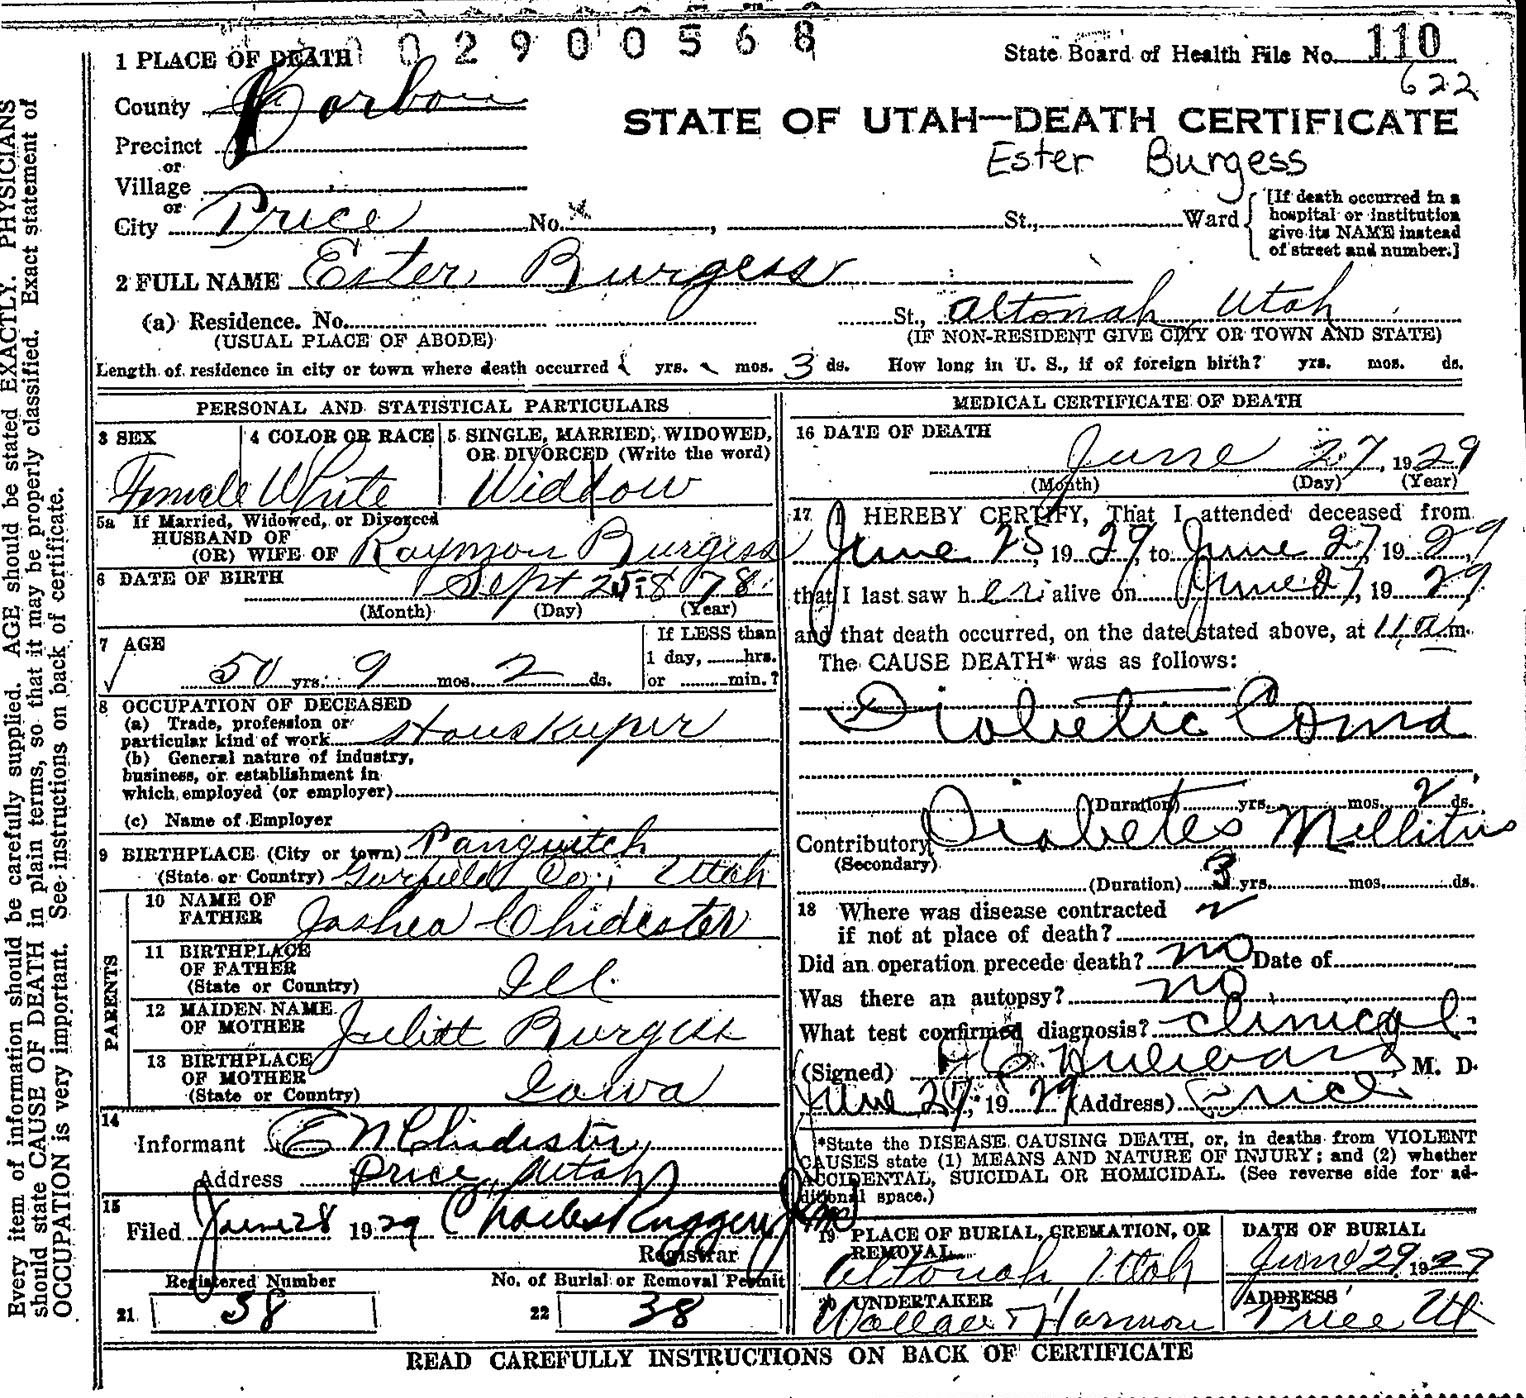 002900568
State Board of Health File No. 110
622
1 PLACE OF DEATH
County Carbon
STATE OF UTAH—DEATH CERTIFICATE
Precinct
or
Ester Burgess
Village
or
City Price No. St., Ward
[If death occurred in a
hospital or institution
give its NAME instead
of street and number.]
2 FULL NAME Ester Burgess
(a) Residence. No. St., Altonah Utah
(USUAL PLACE OF ABODE) (IF NON-RESIDENT GIVE CITY OR TOWN AND STATE)
Length of residence in city or town where death occurred yrs. mos. 3 ds. How long in U. S., if of foreign birth? yrs. mos. ds.
PERSONAL AND STATISTICAL PARTICULARS
3 SEX
Female
4 COLOR OR RACE
White
5 SINGLE, MARRIED, WIDOWED,
OR DIVORCED (Write the word)
Widdow
5a If Married, Widowed, or Divorced
HUSBAND OF
(OR) WIFE OF Raymon Burgess
6 DATE OF BIRTH Sept 25 - 1878
(Month) (Day) (Year)
7 AGE
50 yrs. 9 mos. 2 ds.
If LESS than
1 day, hrs.
or min.?
8 OCCUPATION OF DECEASED
(a) Trade, profession or
particular kind of work Houskeeper
(b) General nature of industry,
business, or establishment in
which employed (or employer)
(c) Name of Employer
9 BIRTHPLACE (City or town) Panquitch
(State or Country) Garfield Co., Utah
PARENTS
10 NAME OF
FATHER Joshea Chidester
11 BIRTHPLACE
OF FATHER
(State or Country) Ill.
12 MAIDEN NAME
OF MOTHER Juliett Burgess
13 BIRTHPLACE
OF MOTHER
(State or Country) Iowa
14
Informant E N Chidester
Address Price, Utah
15
Filed June 28 1929 Charles Ruggeri
Registrar
Registered Number
21 58
No. of Burial or Removal Permit
22 38
MEDICAL CERTIFICATE OF DEATH
16 DATE OF DEATH
June 27, 1929
(Month) (Day) (Year)
17 I HEREBY CERTIFY, That I attended deceased from
June 25, 1929, to June 27, 1929,
that I last saw her alive on June 27, 1929
and that death occurred, on the date stated above, at 11 a m.
The CAUSE DEATH* was as follows:
Diabetic Coma
(Duration) yrs. mos. 2 ds.
Contributory Diabetes Mellitus
(Secondary)
(Duration) 3 yrs. mos. ds.
18 Where was disease contracted
if not at place of death?
Did an operation precede death? no Date of
Was there an autopsy? no
What test confirmed diagnosis? clinical
(Signed) M. D.
June 27, 1929 (Address) Price
*State the DISEASE CAUSING DEATH, or, in deaths from VIOLENT
CAUSES state (1) MEANS AND NATURE OF INJURY; and (2) whether
ACCIDENTAL, SUICIDAL OR HOMICIDAL. (See reverse side for ad-
ditional space.)
19 PLACE OF BURIAL, CREMATION, OR
REMOVAL
Altonah, Utah
DATE OF BURIAL
June 29 1929
20 UNDERTAKER
Wallace & Harmon
ADDRESS
Price Ut
READ CAREFULLY INSTRUCTIONS ON BACK OF CERTIFICATE
Every item of information should be carefully supplied. AGE should be stated EXACTLY. PHYSICIANS
should state CAUSE OF DEATH in plain terms, so that it may be properly classified. Exact statement of
OCCUPATION is very important. See instructions on back of certificate.